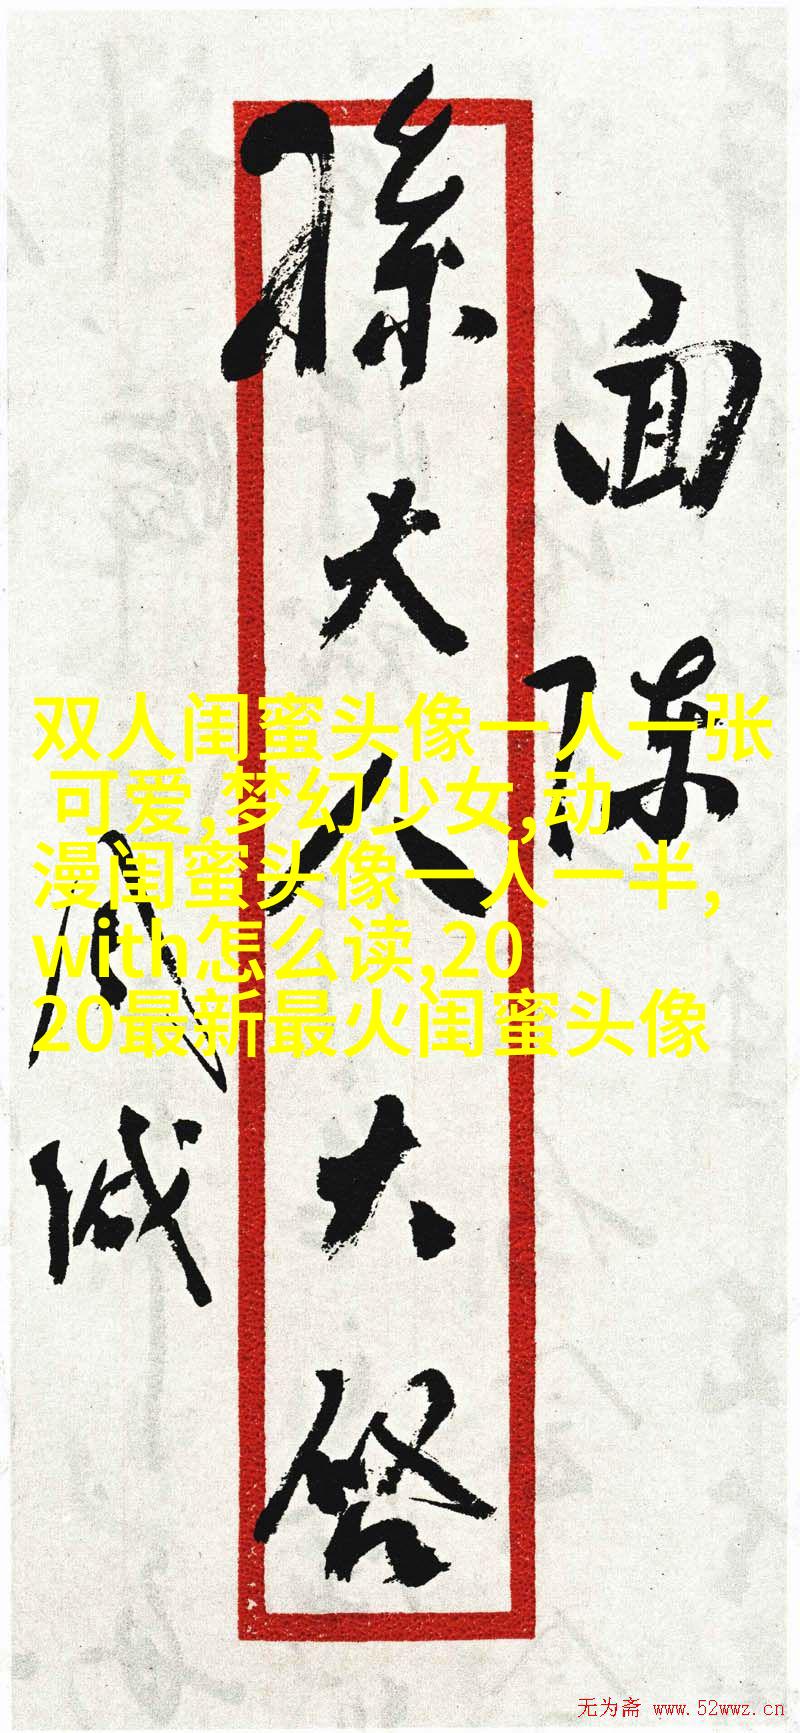 面陳
孫大人大啟
周緘
双人闺蜜头像一人一张
可爱,梦幻少女,动
漫闺蜜头像一人一半,
with怎么读,20
20最新最火闺蜜头像
无为斋 www.52wwz.cn